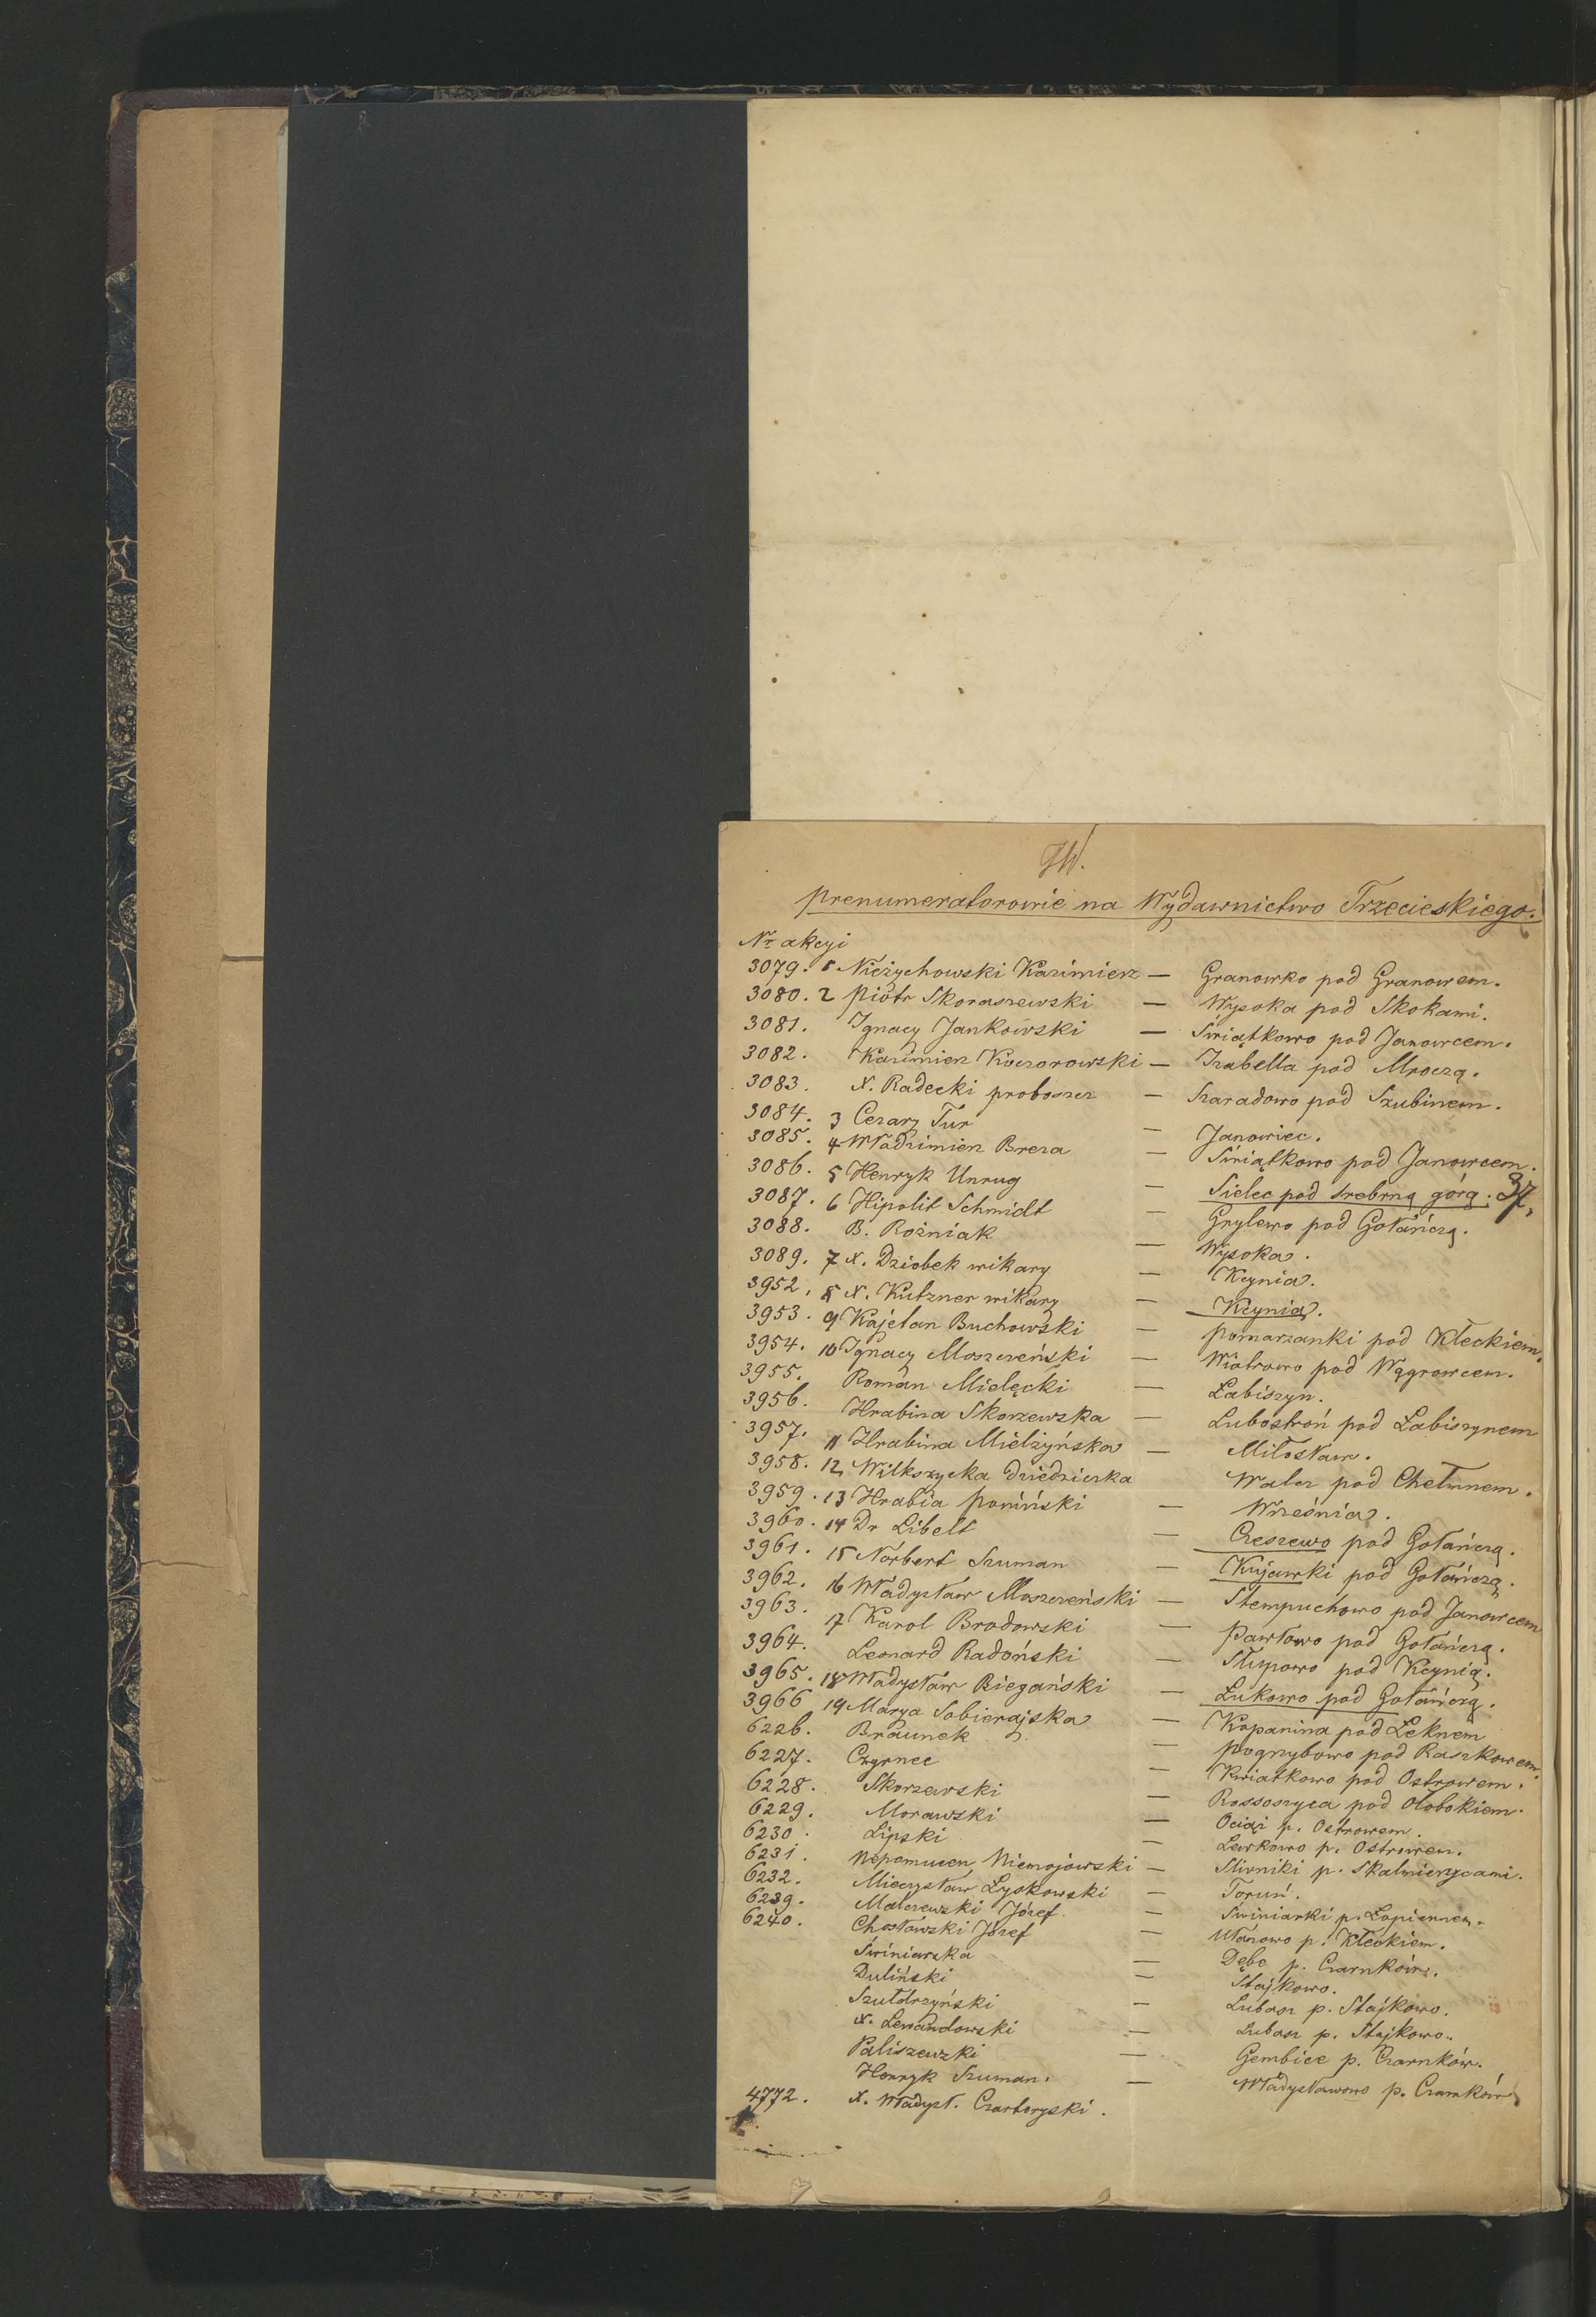 JW.
Prenumeratorowie na Wydawnictwo Trzecieskiego.
Nr akcyi
3079. 1 Nieżychowski Kazimierz — Granowko pod Granowem.
3080. 2 Piotr Skoraszewski — Wysoka pod Skokami.
3081. Ignacy Jankowski — Świątkowo pod Janowcem.
3082. Kazimierz Koczorowski — Izabella pod Mroczą.
3083. X. Radecki proboszcz — Szaradowo pod Szubinem.
3084. 3 Cezary Tur — Janowiec.
3085. 4 Włodzimierz Breza — Świątkowo pod Janowcem.
3086. 5 Henryk Unrug — Sielec pod srebrną górą. 37,
3087. 6 Hipolit Schmidt — Grylewo pod Gołańczą.
3088. B. Rożniak — Wysoka.
3089. 7 X. Dziobek wikary — Kcynia.
3952. 8 X. Kutzner wikary — Kcynia.
3953. 9 Kajetan Buchowski — Pomarzanki pod Kłeckiem.
3954. 10 Ignacy Moszczeński — Wiatrowo pod Wągrowcem.
3955. Roman Mielęcki — Łabiszyn.
3956. Hrabina Skorzewska — Lubostroń pod Łabiszynem
3957. 11 Hrabina Mielżyńska — Miłosław.
3958. 12 Wilkszycka dziedziczka Walcz pod Chełmnem.
3959. 13 Hrabia Poniński — Września.
3960. 14 Dr Libelt — Czeszewo pod Gołańczą.
3961. 15 Norbert Szuman — Kujawki pod Gołańczą.
3962. 16 Władysław Moszczeński — Stempuchowo pod Janowcem
3963. 17 Karol Brodowski — Pawłowo pod Gołańczą.
3964. Leonard Radoński — Słupowo pod Kcynią.
3965. 18 Władysław Biegański — Łukowo pod Gołańczą.
3966 19 Marya Sobierajska — Kopanina pod Leknem
6226. Braunek — Pogrzybowo pod Raszkowem.
6227. Czyrnec — Kwiatkowo pod Ostrowem.
6228. Skorzewski — Rossoszyca pod Ołobokiem.
6229. Morawski — Ociąż p. Ostrowem.
6230. Lipski — Lewkowo p. Ostrowem.
6231. Nepomucen Niemojowski — Śliwniki p. Skalmierzycami.
6232. Mieczysław Łyskowski — Toruń.
6239. Malczewski Józef. — Świniarki p. Łopiennem.
6240. Chosłowski Józef — Ułanowo p. Kłeckiem.
Świniarska — Dębe p. Czarnków.
Duliński — Stajkowo.
Szułdrzyński — Lubasz p. Stajkowo.
X. Lewandowski — Lubasz p. Stajkowo.
Paliszewski — Gembice p. Czarnków.
Henryk Szuman. — Władysławowo p. Czarnków
4772. X. Władysł. Czartoryski.